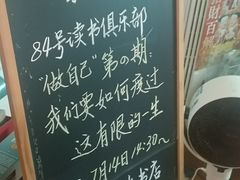 84号读书俱乐部
“做自己”第0期:
我们要如何度过
这有限的一生
7月14日14:30~
书店